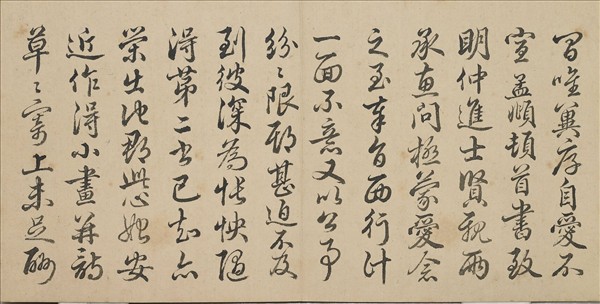 間唯冀厚自愛不
宣孟頫頓首書致
明仲進士賢親兩
承惠問極蒙愛念
之至西行計
一面不意又以公事
紛〻限期甚迫不及
到彼深為悵怏隨
得第二書已知亦
榮出他郡此心始安
近作得小畫并詩
草〻寄上未足酬